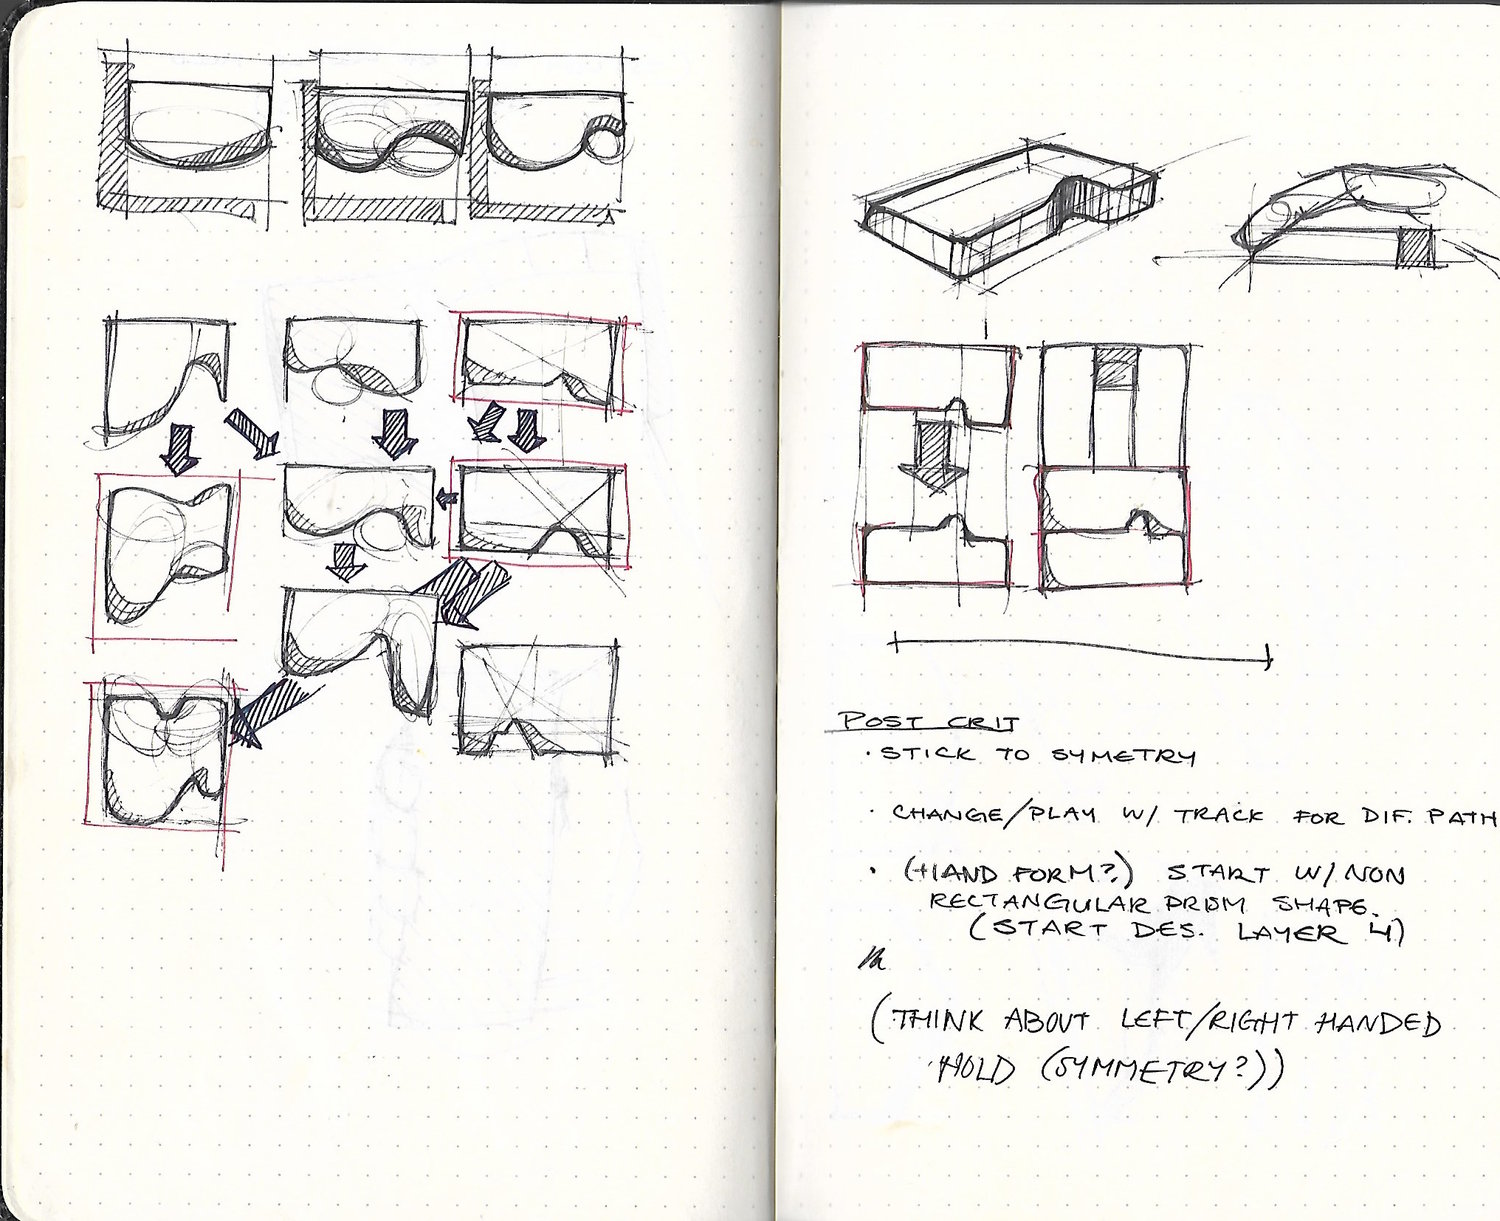 POST CRIT
· STICK TO SYMETRY
· CHANGE/PLAY W/ TRACK FOR DIF. PATH
· (HAND FORM?) START W/ NON
RECTANGULAR PRISM SHAPE.
(START DES. LAYER 4)
(THINK ABOUT LEFT/RIGHT HANDED
HOLD (SYMMETRY?))